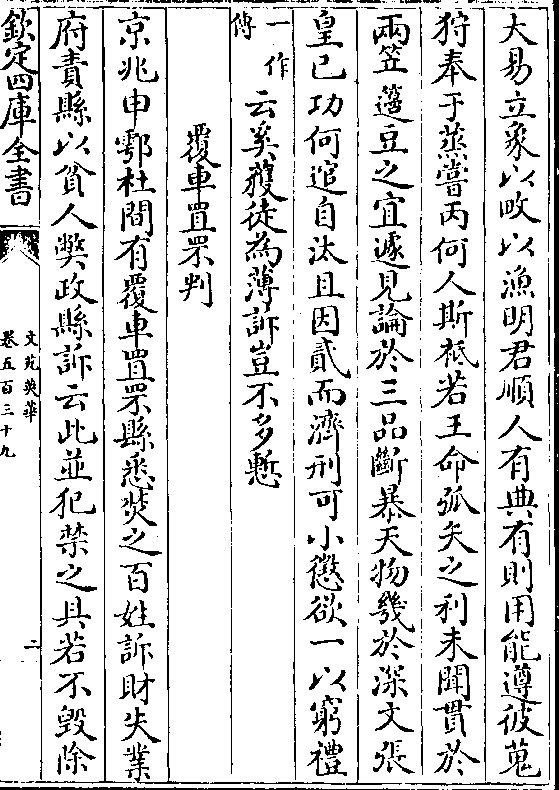 大易立象以畋以漁明君順人有典有則用能遵彼蒐
狩奉于蒸嘗丙何人斯祇若王命弧矢之利未聞貫於
兩笠籩豆之宜遽見論於三品斷暴天物幾於深文張
皇已功何逭自汰且因貳而濟刑可小懲欲一以窮禮
一作
傳
云奚獲徒為薄訴豈不多慙
覆車罝罘判
京兆申鄠杜間有覆車罝罘縣悉焚之百姓訴財失業
府責縣以貧人弊政縣訴云此並犯禁之具若不毀除
欽定四庫全書
文苑英華
卷五百三十九
二